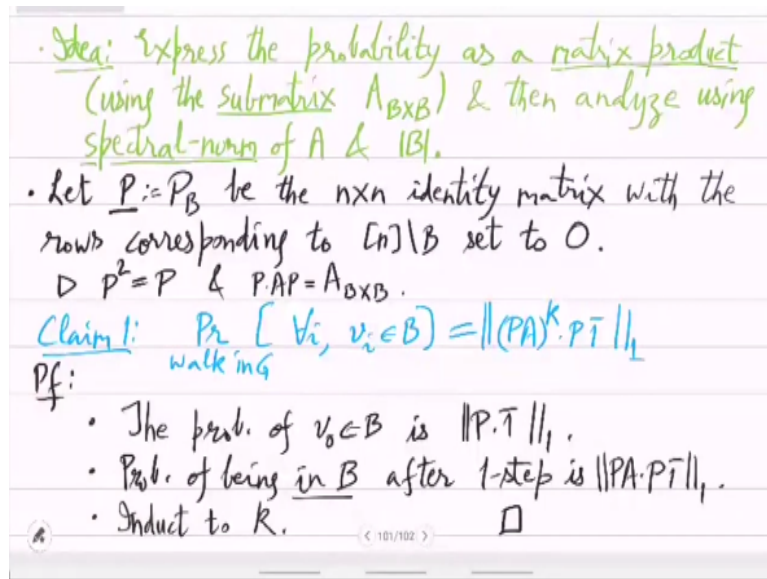 · Idea: Express the probability as a matrix product
(using the submatrix A_{B×B}) & then analyze using
spectral-norm of A & |B|.
· Let P := P_B be the n×n identity matrix with the
rows corresponding to [n]\B set to 0.
▷ P² = P & P·AP = A_{B×B}.
Claim 1: Pr [∀i, v_i ∈ B] = ||(PA)^k · P1̄||_1
walk in G
Pf:
· The prob. of v_0 ∈ B is ||P·1̄||_1.
· Prob. of being in B after 1-step is ||PA·P1̄||_1.
· Induct to k. □
< 101/102 >